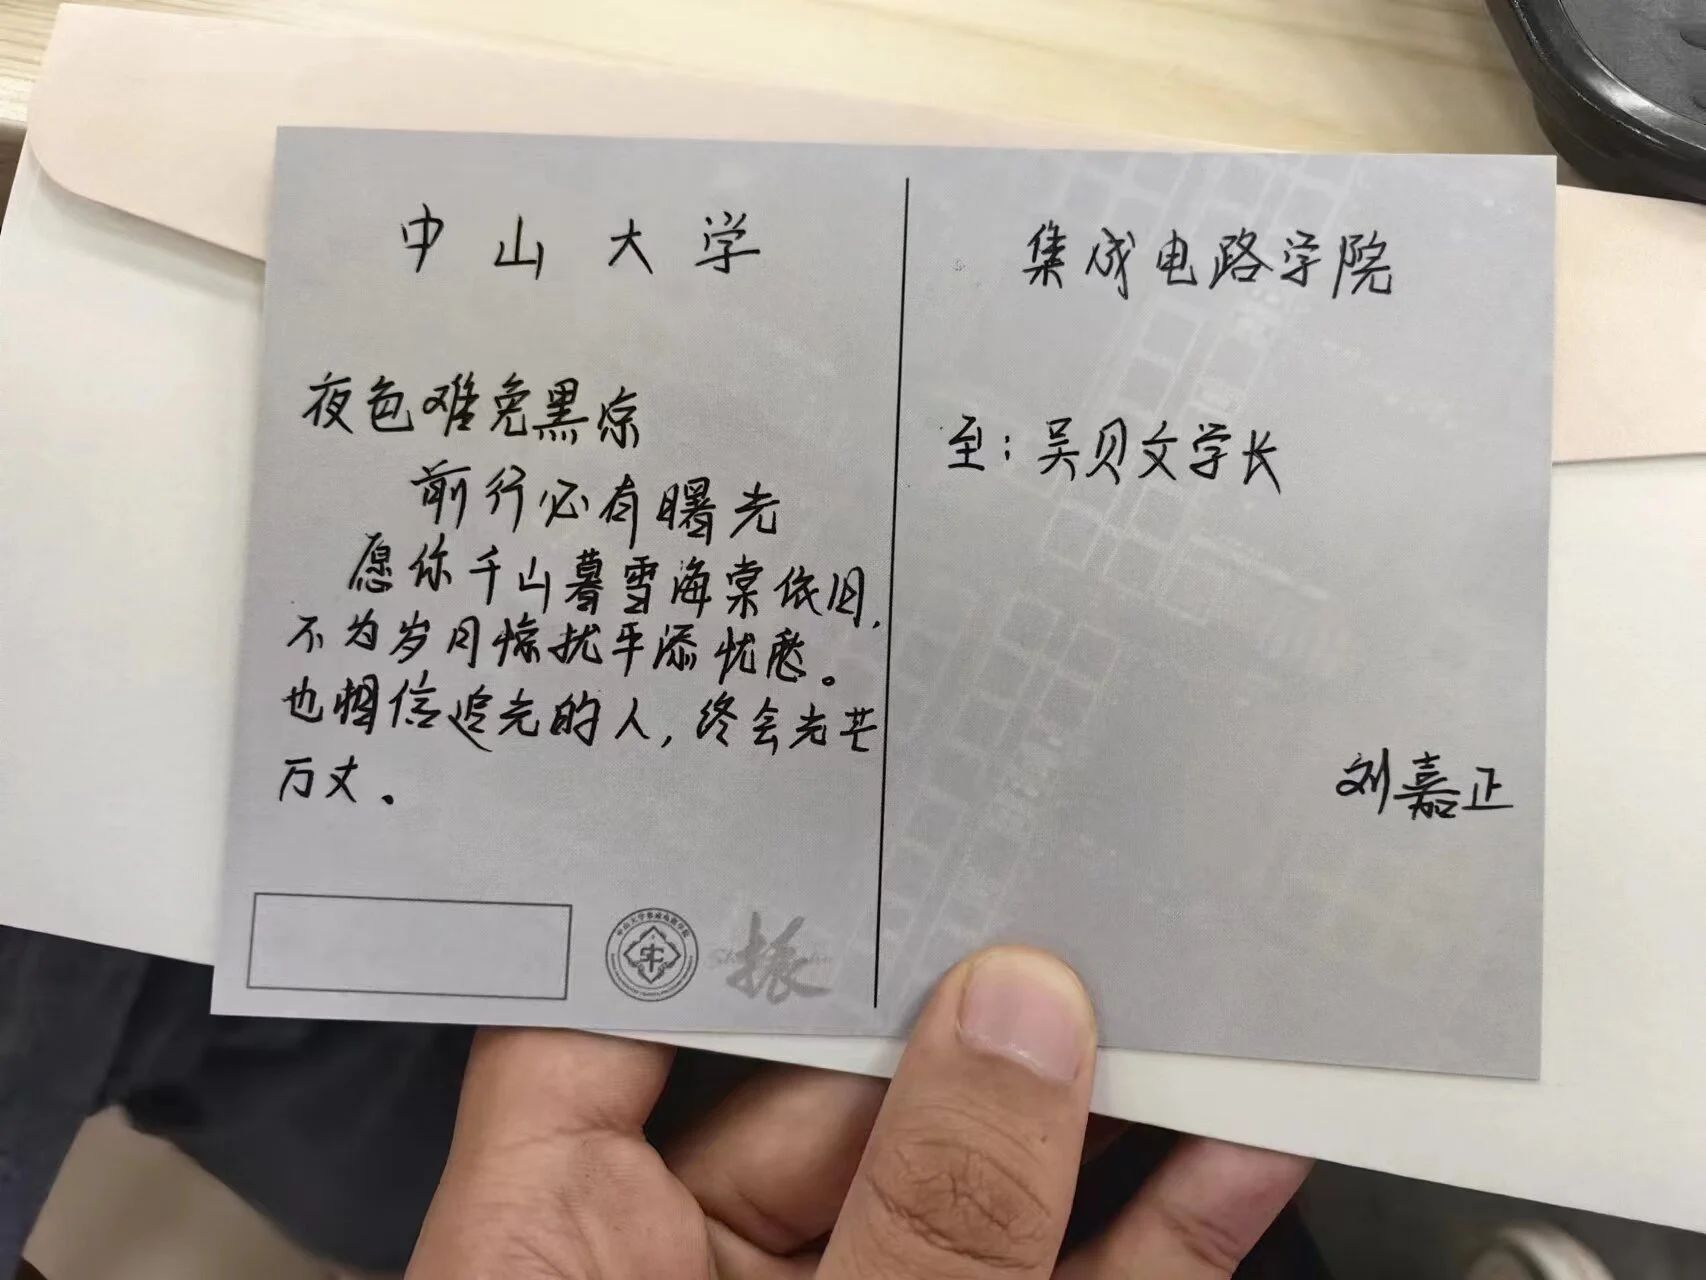 中山大学
夜色难免黑凉
前行必有曙光
愿你千山暮雪海棠依旧,
不为岁月惊扰平添忧愁。
也相信追光的人,终会光芒
万丈。
振
集成电路学院
至:吴贝文学长
刘嘉正